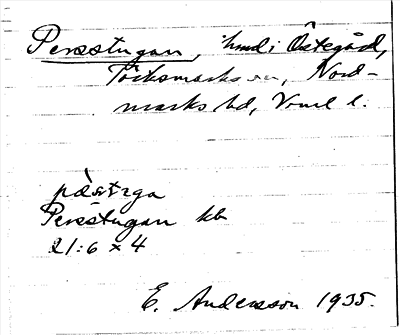 Persstugan, hmd i Östegård,
Töcksmarks sn, Nord-
marks hd, Vrml l.
pæ̀stæga
Persstugan kb
21:6 x 4
E. Andersson 1935.